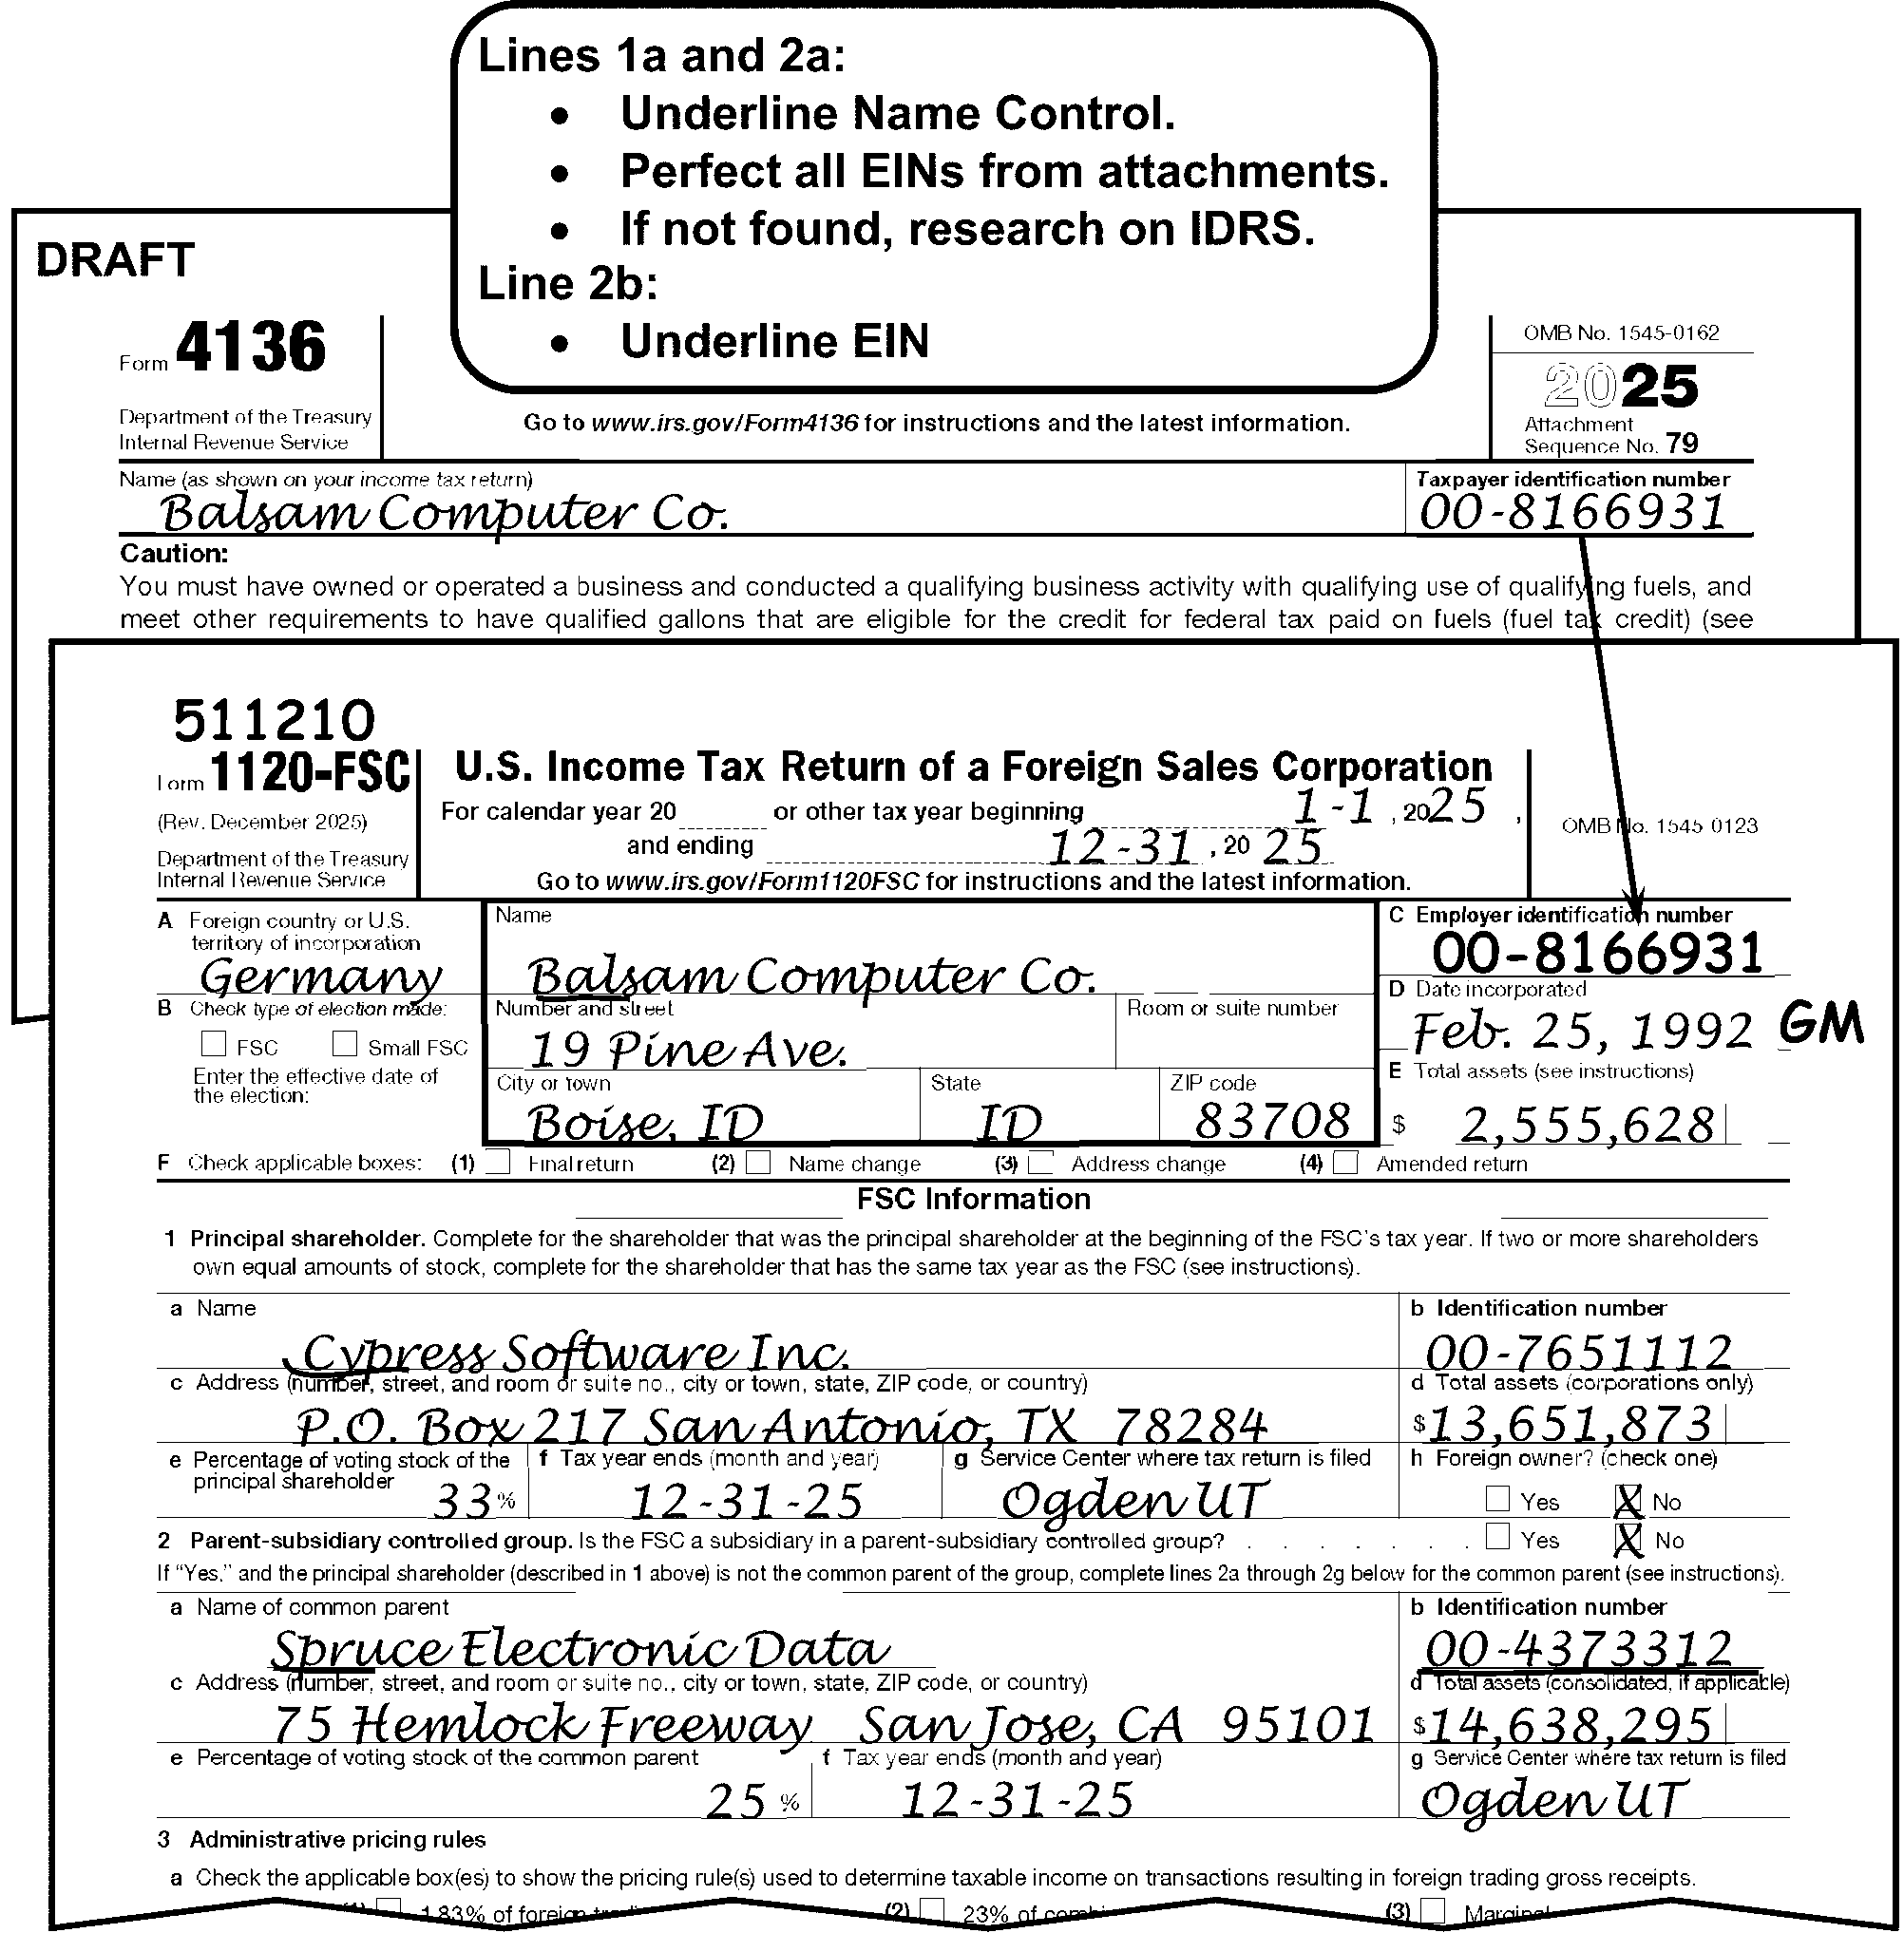 Lines 1a and 2a:
• Underline Name Control.
• Perfect all EINs from attachments.
• If not found, research on IDRS.
Line 2b:
• Underline EIN
DRAFT
Form 4136
Department of the Treasury
Internal Revenue Service
Go to www.irs.gov/Form4136 for instructions and the latest information.
OMB No. 1545-0162
2025
Attachment
Sequence No. 79
Name (as shown on your income tax return)
Balsam Computer Co.
Taxpayer identification number
00-8166931
Caution:
You must have owned or operated a business and conducted a qualifying business activity with qualifying use of qualifying fuels, and
meet other requirements to have qualified gallons that are eligible for the credit for federal tax paid on fuels (fuel tax credit) (see
511210
Form 1120-FSC
(Rev. December 2025)
Department of the Treasury
Internal Revenue Service
U.S. Income Tax Return of a Foreign Sales Corporation
For calendar year 20 or other tax year beginning 1-1 , 2025 ,
and ending 12-31 , 20 25
Go to www.irs.gov/Form1120FSC for instructions and the latest information.
OMB No. 1545-0123
A Foreign country or U.S.
territory of incorporation
Germany
Name
Balsam Computer Co.
C Employer identification number
00-8166931
B Check type of election made:
FSC Small FSC
Enter the effective date of
the election:
Number and street
19 Pine Ave.
Room or suite number
D Date incorporated
Feb. 25, 1992 GM
City or town
Boise, ID
State
ID
ZIP code
83708
E Total assets (see instructions)
$ 2,555,628
F Check applicable boxes: (1) Final return (2) Name change (3) Address change (4) Amended return
FSC Information
1 Principal shareholder. Complete for the shareholder that was the principal shareholder at the beginning of the FSC's tax year. If two or more shareholders
own equal amounts of stock, complete for the shareholder that has the same tax year as the FSC (see instructions).
a Name
Cypress Software Inc.
b Identification number
00-7651112
c Address (number, street, and room or suite no., city or town, state, ZIP code, or country)
P.O. Box 217 San Antonio, TX 78284
d Total assets (corporations only)
$13,651,873
e Percentage of voting stock of the
principal shareholder
33 %
f Tax year ends (month and year)
12-31-25
g Service Center where tax return is filed
Ogden UT
h Foreign owner? (check one)
Yes X No
2 Parent-subsidiary controlled group. Is the FSC a subsidiary in a parent-subsidiary controlled group? . . . . . . . Yes X No
If "Yes," and the principal shareholder (described in 1 above) is not the common parent of the group, complete lines 2a through 2g below for the common parent (see instructions).
a Name of common parent
Spruce Electronic Data
b Identification number
00-4373312
c Address (number, street, and room or suite no., city or town, state, ZIP code, or country)
75 Hemlock Freeway San Jose, CA 95101
d Total assets (consolidated, if applicable)
$14,638,295
e Percentage of voting stock of the common parent
25 %
f Tax year ends (month and year)
12-31-25
g Service Center where tax return is filed
Ogden UT
3 Administrative pricing rules
a Check the applicable box(es) to show the pricing rule(s) used to determine taxable income on transactions resulting in foreign trading gross receipts.
(1) 1.83% of foreign (2) 23% of (3)